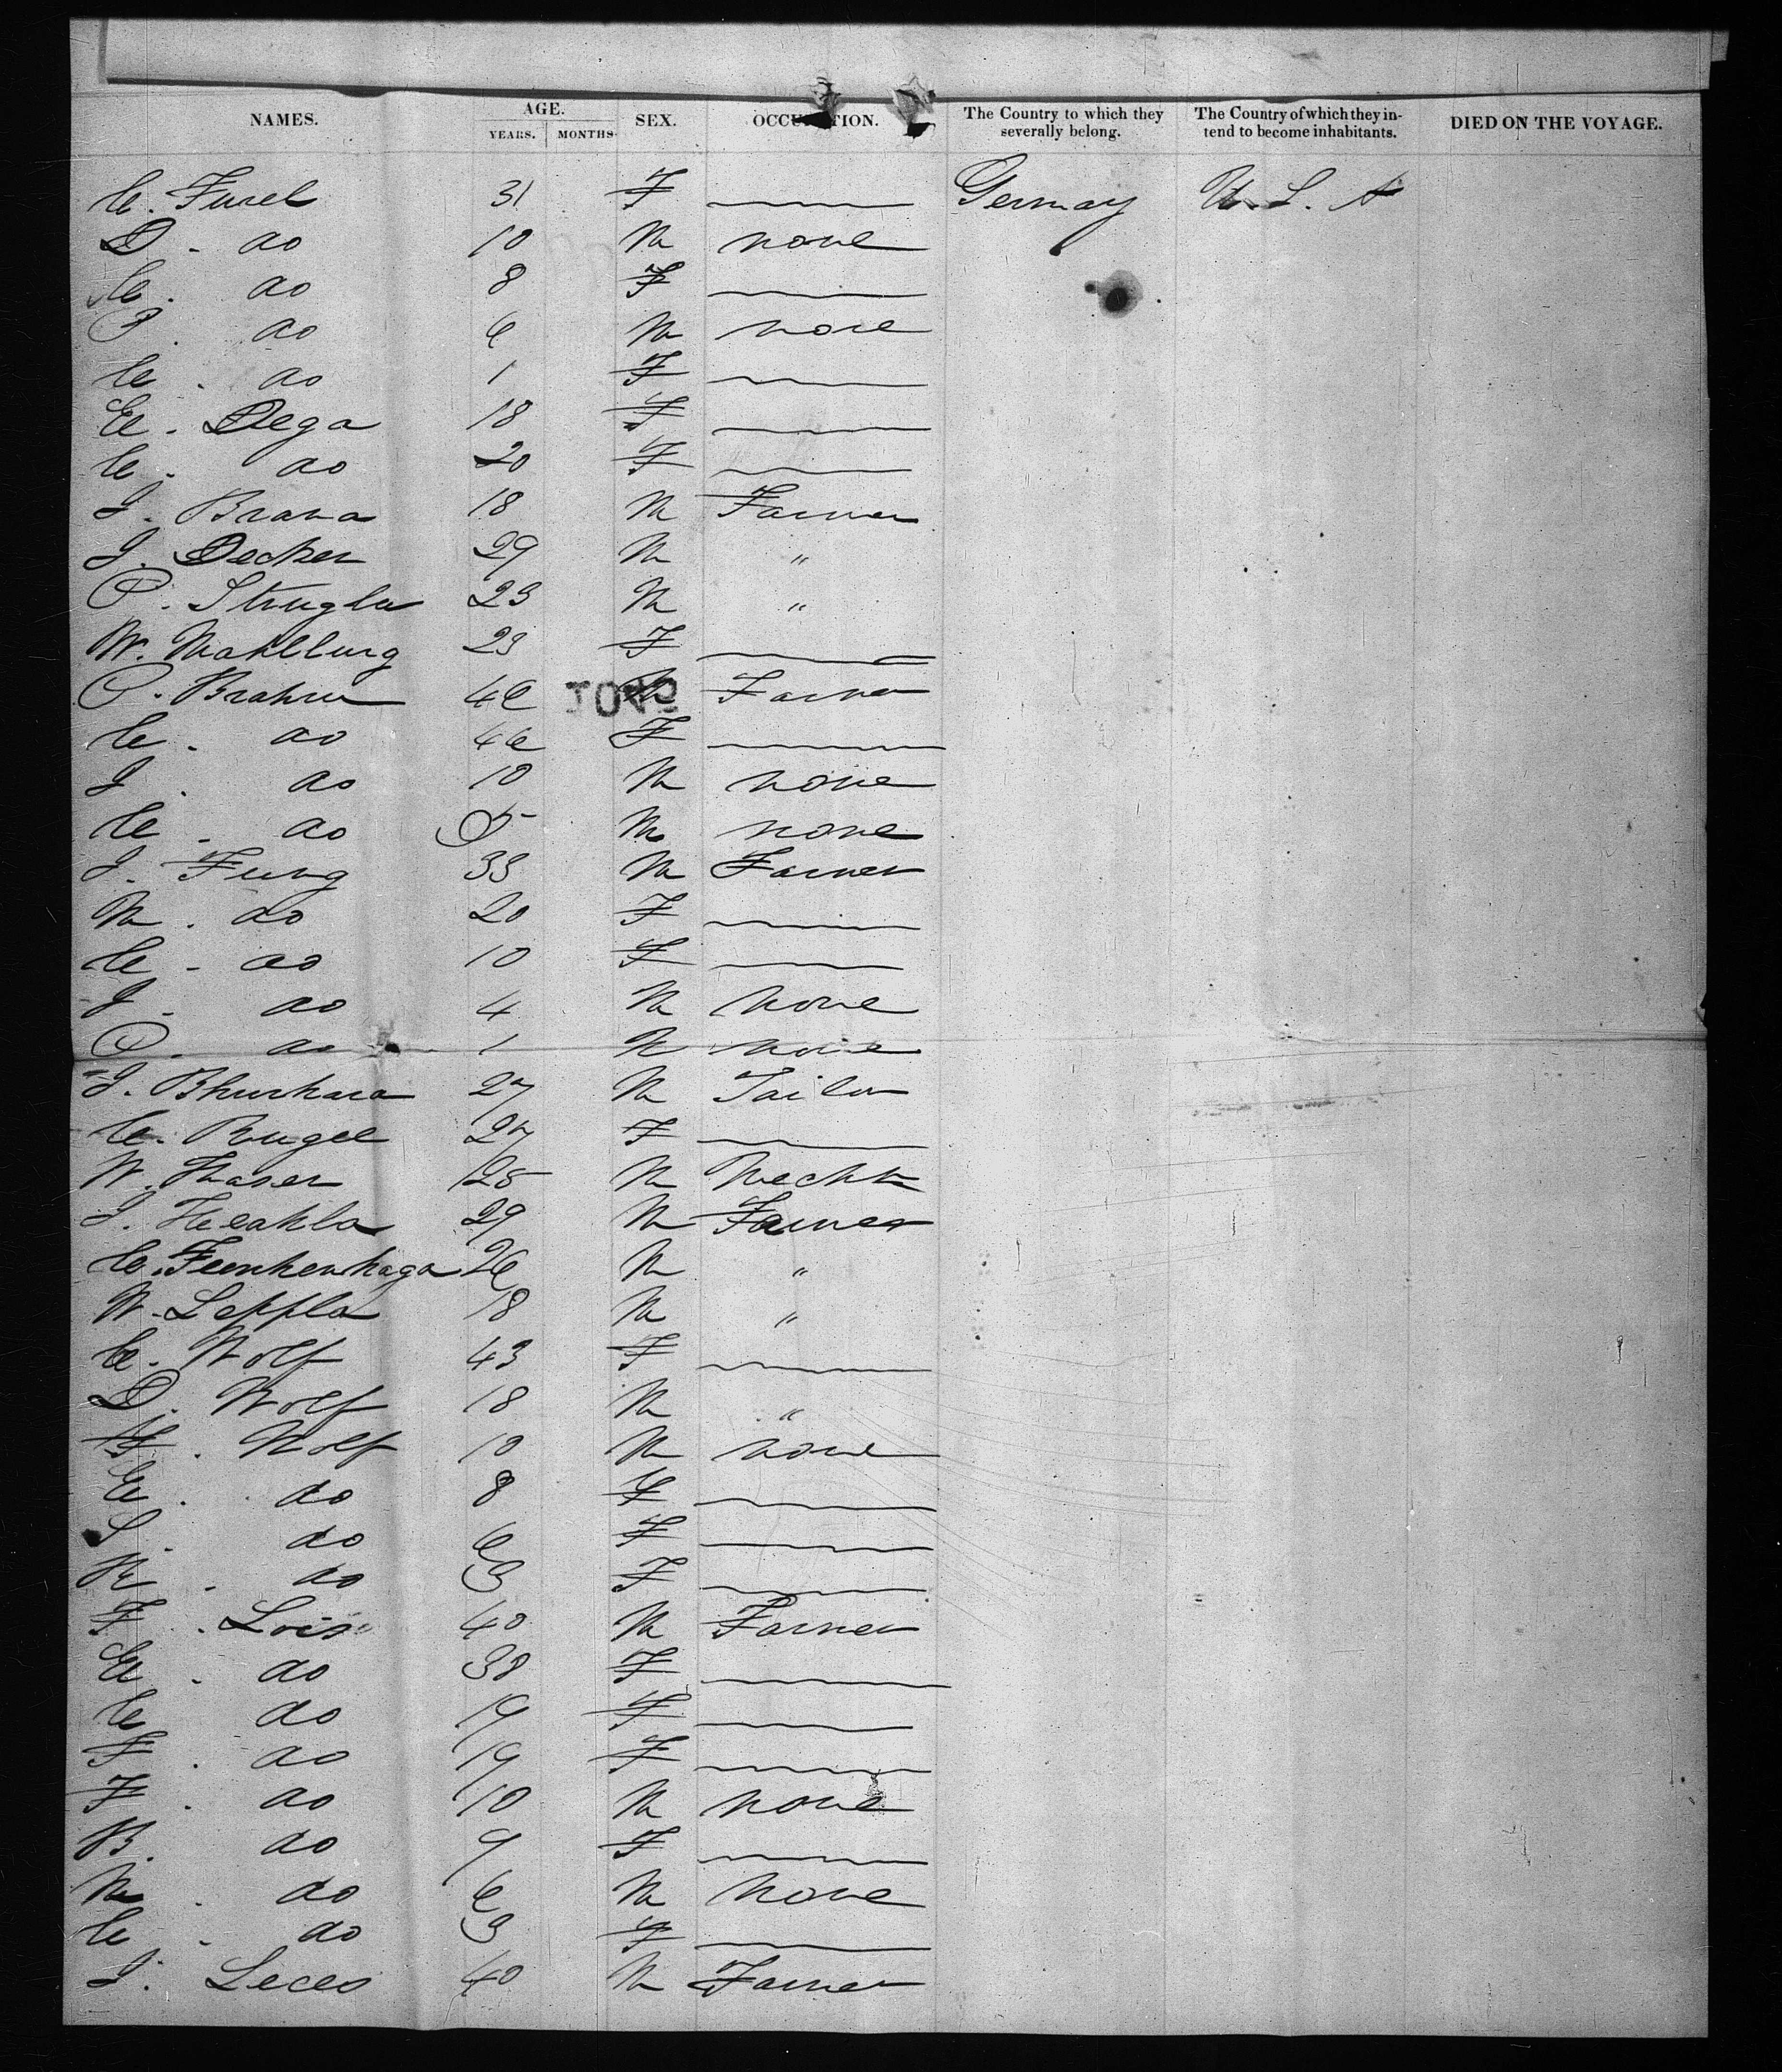 NAMES. AGE. YEARS. MONTHS. SEX. OCCUPATION. The Country to which they severally belong. The Country of which they intend to become inhabitants. DIED ON THE VOYAGE.
C. Fusel 31 F Germay U.S.A
D. do 10 M none
C. do 8 F
P. do 6 M none
C. do 1 F
E. Dega 18 F
C. do 20 F
J. Brana 18 M Farmer
J. Decker 29 M "
P. 23 M "
W. Mahlburg 23 F
P. Brahm 46 M Farmer
C. do 46 F
J. do 10 M none
C. do 5 M none
J. Fung 33 M Farmer
M. do 20 F
C. do 10 F
J. do 4 M none
P. do 1 M none
J. 27 M Tailor
C. Rugel 27 F
W. Haser 25 M
J. 29 M Farmer
C. 26 M "
W. Leppla 18 M "
C. Wolf 43 F
D. Wolf 18 M "
H. Wolf 10 M none
E. do 8 F
S. do 6 F
K. do 3 F
F. Lois 40 M Farmer
E. do 38 F
C. do 19 F
F. do 19 F
F. do 10 M none
B. do 9 F
M. do 6 M none
C. do 3 F
J. 40 M Farmer